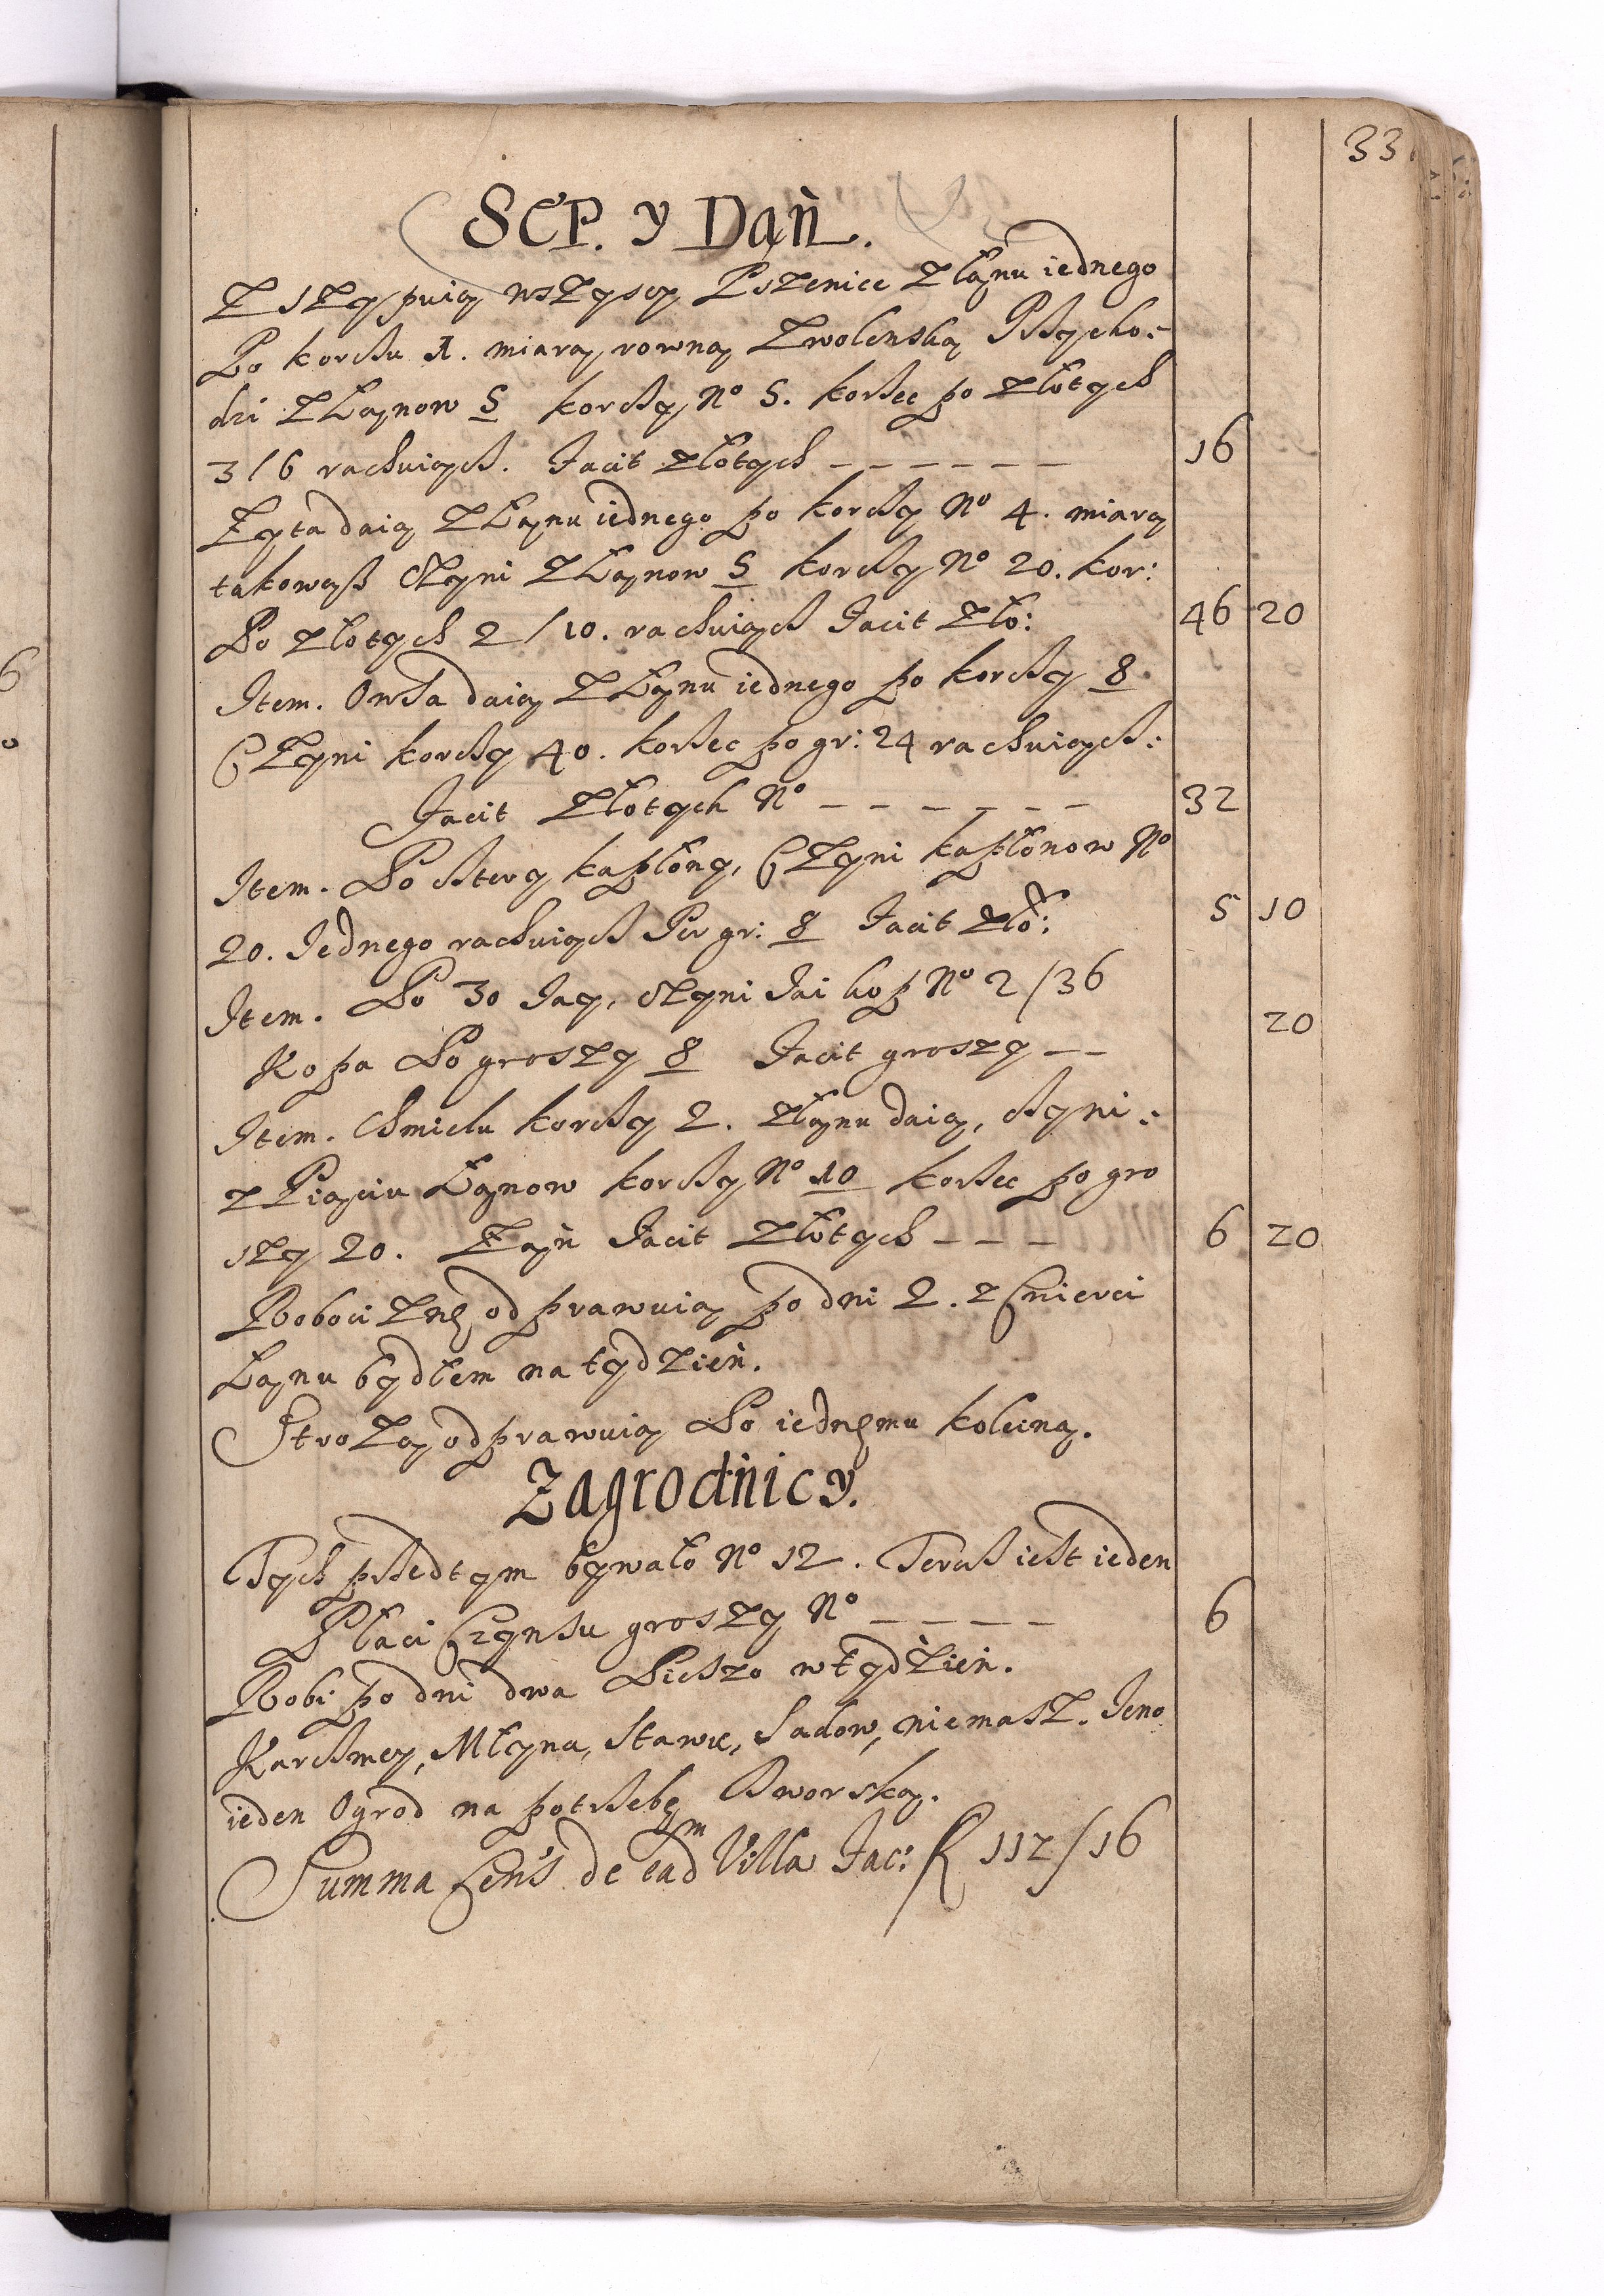 33
SEP. y Dań.
Zszypuią wszyscy Pszenice z Łanu iednego
Po korcu 1. miarą rowną Zwolenską Przycho:
dzi z Łanow 5 korcy No 5. korzec po złotych
3/6 rachuiącz. Facit złotych — — — — — — 16
Zyta daią z Łanu iednego po korcy No 4. miarą
takowąsz czyni z Łanow 5 korcy No 20. kor:
Po złotych 2/10. rachuiącz Facit zło: 46 20
Item. Owsa daią z Łanu iednego po korcy 8.
Czyni korcy 40. korzec po gr: 24 rachuiącz:
Facit złotych No — — — — — — 32
Item. Po cztery kapłony, Czyni kapłonow No
20. Jednego rachuiącz Per gr: 8 Facit zło: 5 10
Item. Po 30 Jay, czyni Jai kop No 2/36
Kopa Po groszy 8 Facit groszy — — 20
Item. Chmielu korcy 2. z Łanu daią, czyni:
z Piąciu Łanow korcy No 10 korzec po gro
szy 20. Łań Facit złotych — — — 6 20
Robocizne odprawuią po dni 2. z Cwierci
Łanu bydłem na tydzień.
Strożą odprawuią Po iednemu koleiną.
Zagrodnicy.
Tych przedtym bywało No 12. Teraz iest ieden
Płaci Czynszu groszy No — — — — 6
Robi po dni dwa Pieszo w tydzień.
Karczmey, Młyna, Stawu, Sadow, niemasz. Jeno
ieden Ogrod na potrzebę Dworską.
Summa Cens de eadm Villa Fac: f 112/16